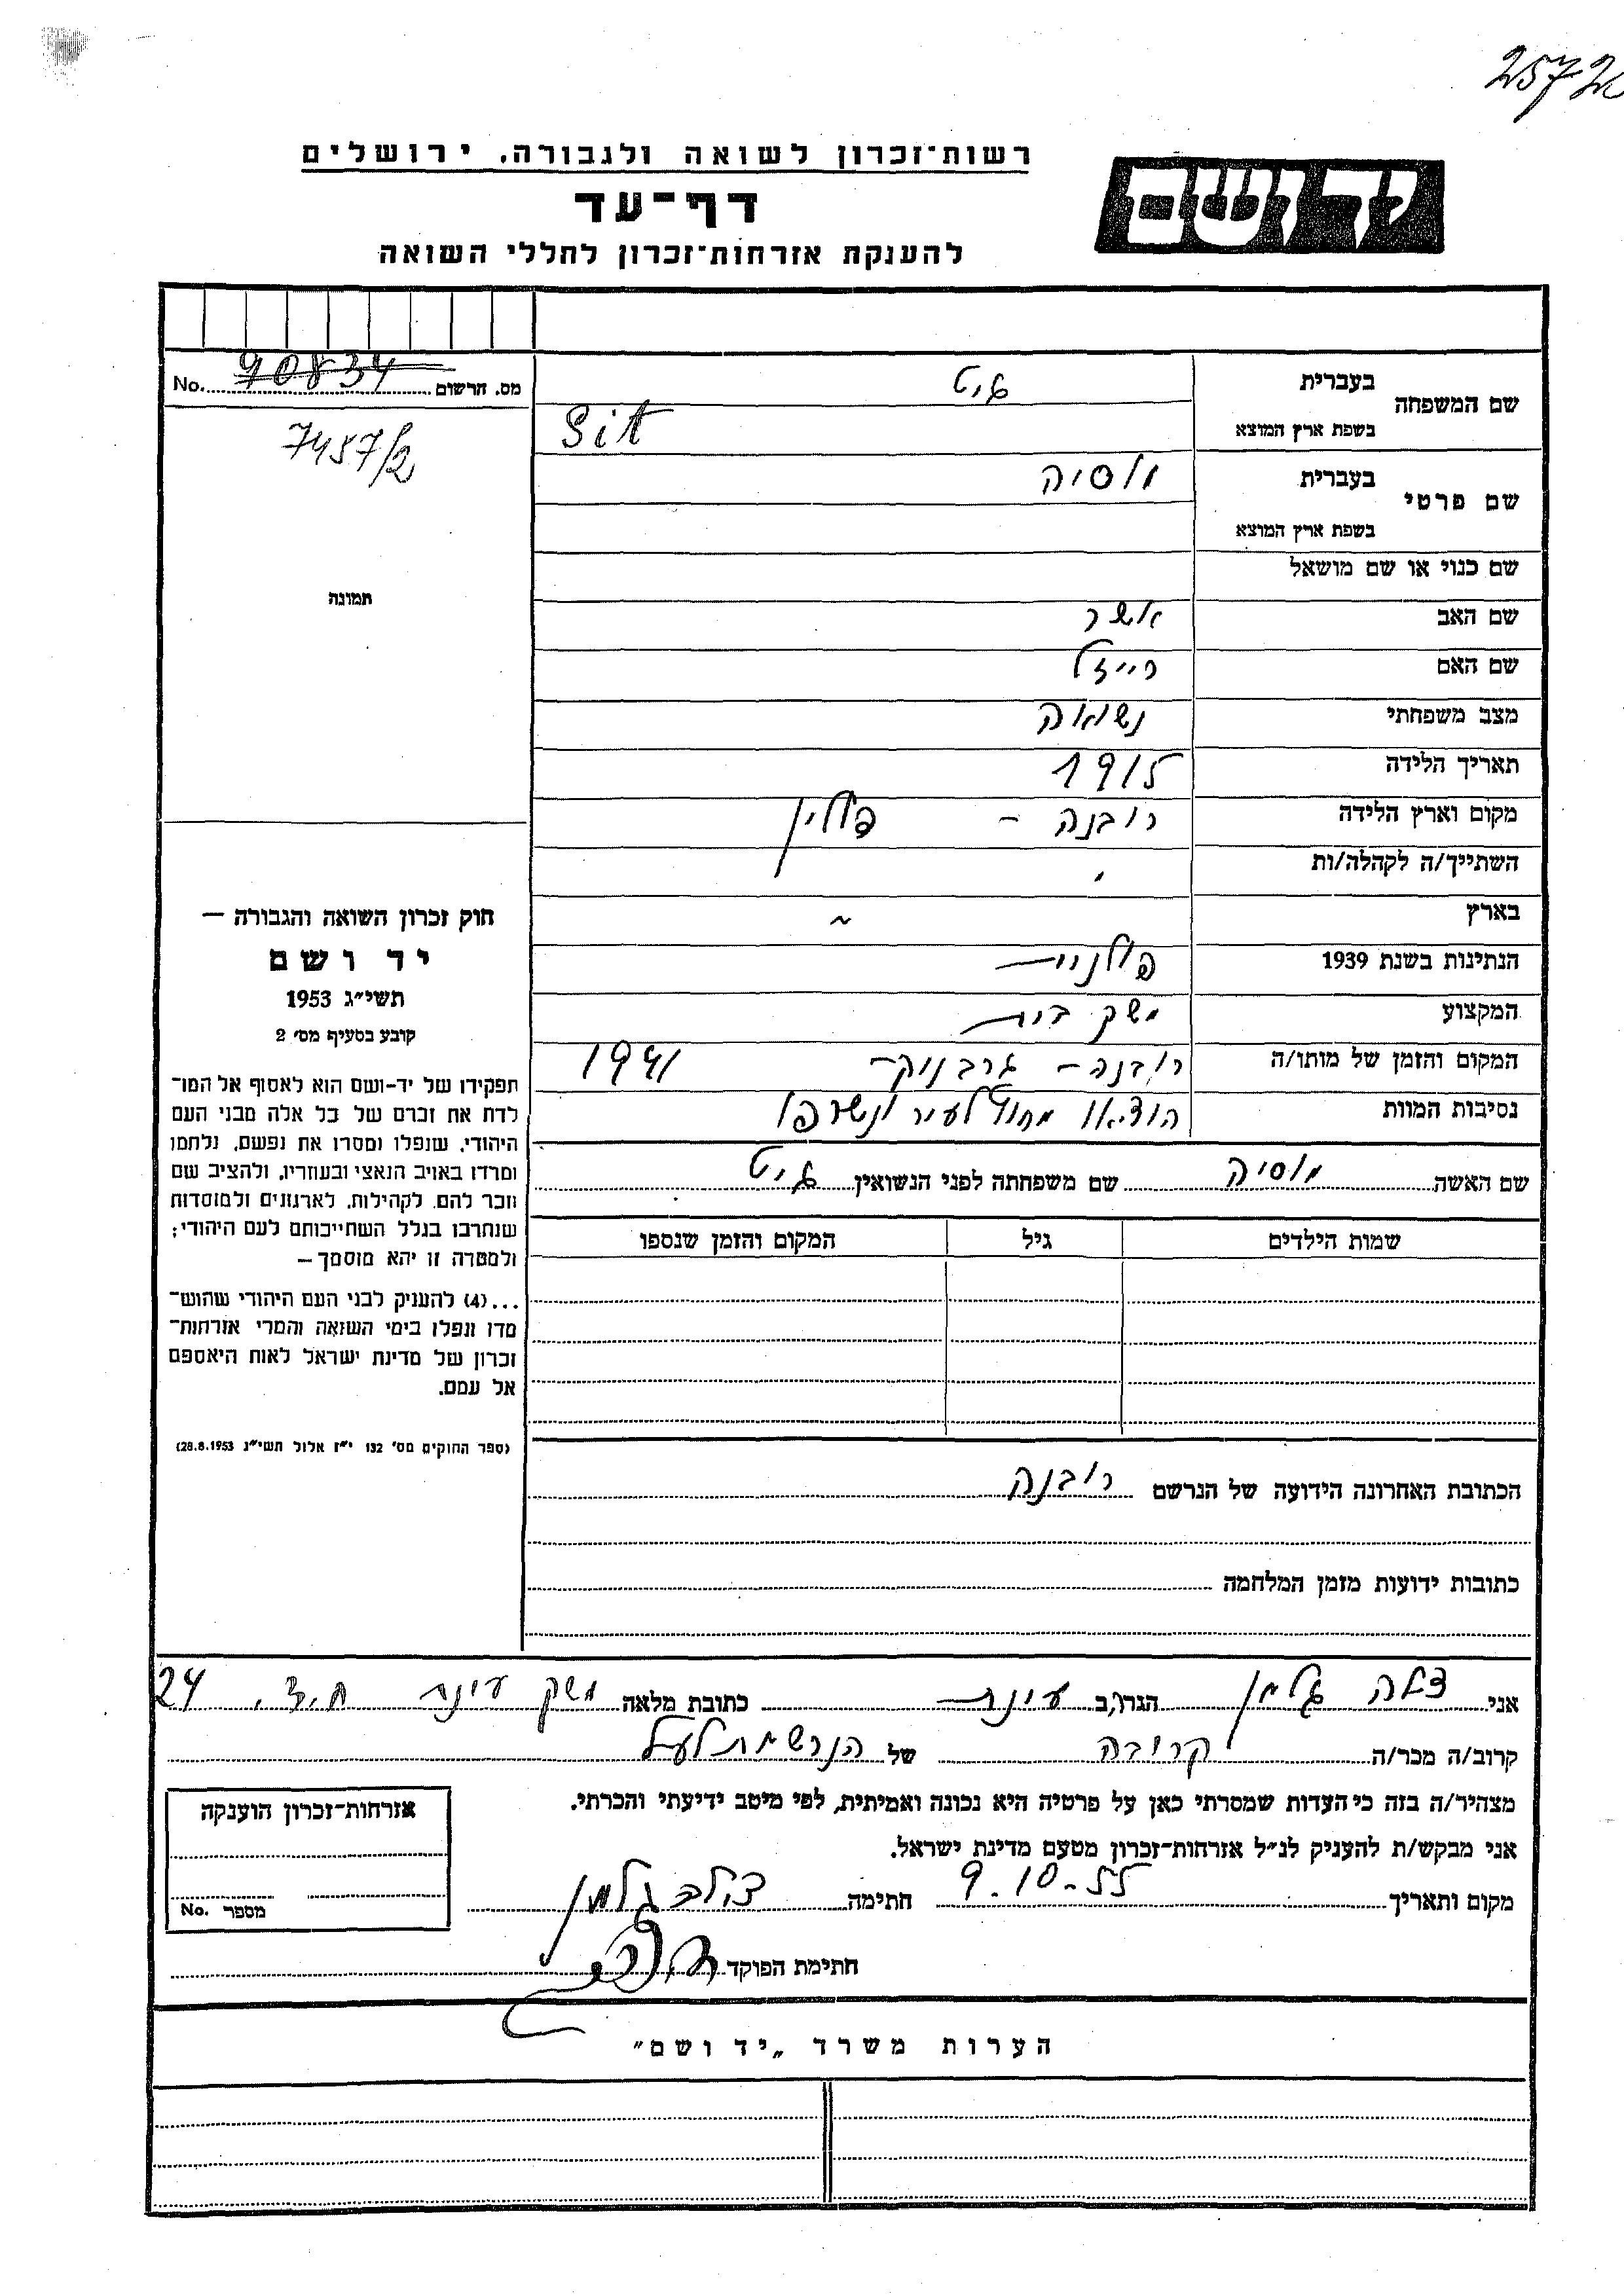 25720
רשות־זכרון לשואה ולגבורה, ירושלים
יד ושם
דף־עד
להענקת אזרחות־זכרון לחללי השואה
מס. הרשום 90834 No.
7457/2
תמונה
שם המשפחה
בעברית
בשפת ארץ המוצא Sit
שם פרטי
בעברית
בשפת ארץ המוצא
שם כנוי או שם מושאל
שם האב אשר
שם האם רייזל
מצב משפחתי נשואה
תאריך הלידה 1915
מקום וארץ הלידה רובנה - פולין
השתייך/ה לקהלה/ות "
בארץ ~
הנתינות בשנת 1939 פולנית
המקצוע משק בית
המקום והזמן של מותו/ה רובנה - 1941
נסיבות המוות הוציאו מחוץ לעיר ונשרפו
שם האשה מוסיה שם משפחתה לפני הנשואין
שמות הילדים גיל המקום והזמן שנספו
הכתובת האחרונה הידועה של הנרשם רובנה
כתובות ידועות מזמן המלחמה
חוק זכרון השואה והגבורה —
יד ושם
תשי״ג 1953
קובע בסעיף מס׳ 2
תפקידו של יד-ושם הוא לאסוף אל המו־
לדת את זכרם של כל אלה מבני העם
היהודי, שנפלו ומסרו את נפשם, נלחמו
ומרדו באויב הנאצי ובעוזריו, ולהציב שם
וזכר להם, לקהילות, לארגונים ולמוסדות
שנחרבו בגלל השתייכותם לעם היהודי;
ולמטרה זו יהא מוסמך —
...(4) להעניק לבני העם היהודי שהוש־
מדו ונפלו בימי השואה והמרי אזרחות־
זכרון של מדינת ישראל לאות היאספם
אל עמם.
(ספר החוקים מס׳ 132 י״ז אלול תשי״ג 28.8.1953)
אני צילה גלמן הגר/ב עינת כתובת מלאה משק עינת ת.ד. 24
קרוב/ה מכר/ה קרובה של הנרשמת לעיל
מצהיר/ה בזה כי העדות שמסרתי כאן על פרטיה היא נכונה ואמיתית, לפי מיטב ידיעתי והכרתי.
אני מבקש/ת להעניק לנ״ל אזרחות־זכרון מטעם מדינת ישראל.
מקום ותאריך 9.10-55 חתימה צילה גלמן
חתימת הפוקד
אזרחות־זכרון הוענקה
מספר No.
הערות משרד „יד ושם״